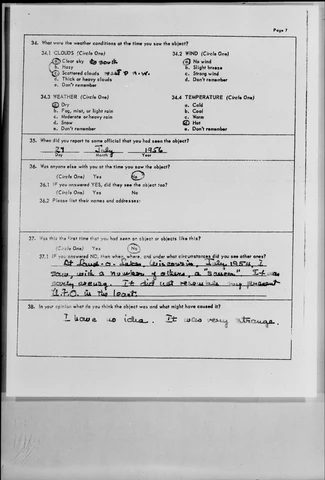 Page 7
34. What were the weather conditions at the time you saw the object?
34.1 CLOUDS (Circle One) 34.2 WIND (Circle One)
a. Clear sky to south a. No wind
b. Hazy b. Slight breeze
c. Scattered clouds west & n.w. c. Strong wind
d. Thick or heavy clouds d. Don't remember
e. Don't remember
34.3 WEATHER (Circle One) 34.4 TEMPERATURE (Circle One)
a. Dry a. Cold
b. Fog, mist, or light rain b. Cool
c. Moderate or heavy rain c. Warm
d. Snow d. Hot
e. Don't remember e. Don't remember
35. When did you report to some official that you had seen the object?
29 July 1956
Day Month Year
36. Was anyone else with you at the time you saw the object?
(Circle One) Yes No
36.1 IF you answered YES, did they see the object too?
(Circle One) Yes No
36.2 Please list their names and addresses:
37. Was this the first time that you had seen an object or objects like this?
(Circle One) Yes No
37.1 IF you answered NO, then when, where, and under what circumstances did you see other ones?
At Land-o-Lakes Wisconsin, July 1954, I
saw, with a number of others, a "saucer". It was
It did not resemble my present
U.F.O. in the least.
38. In your opinion what do you think the object was and what might have caused it?
I have no idea. It was very strange.